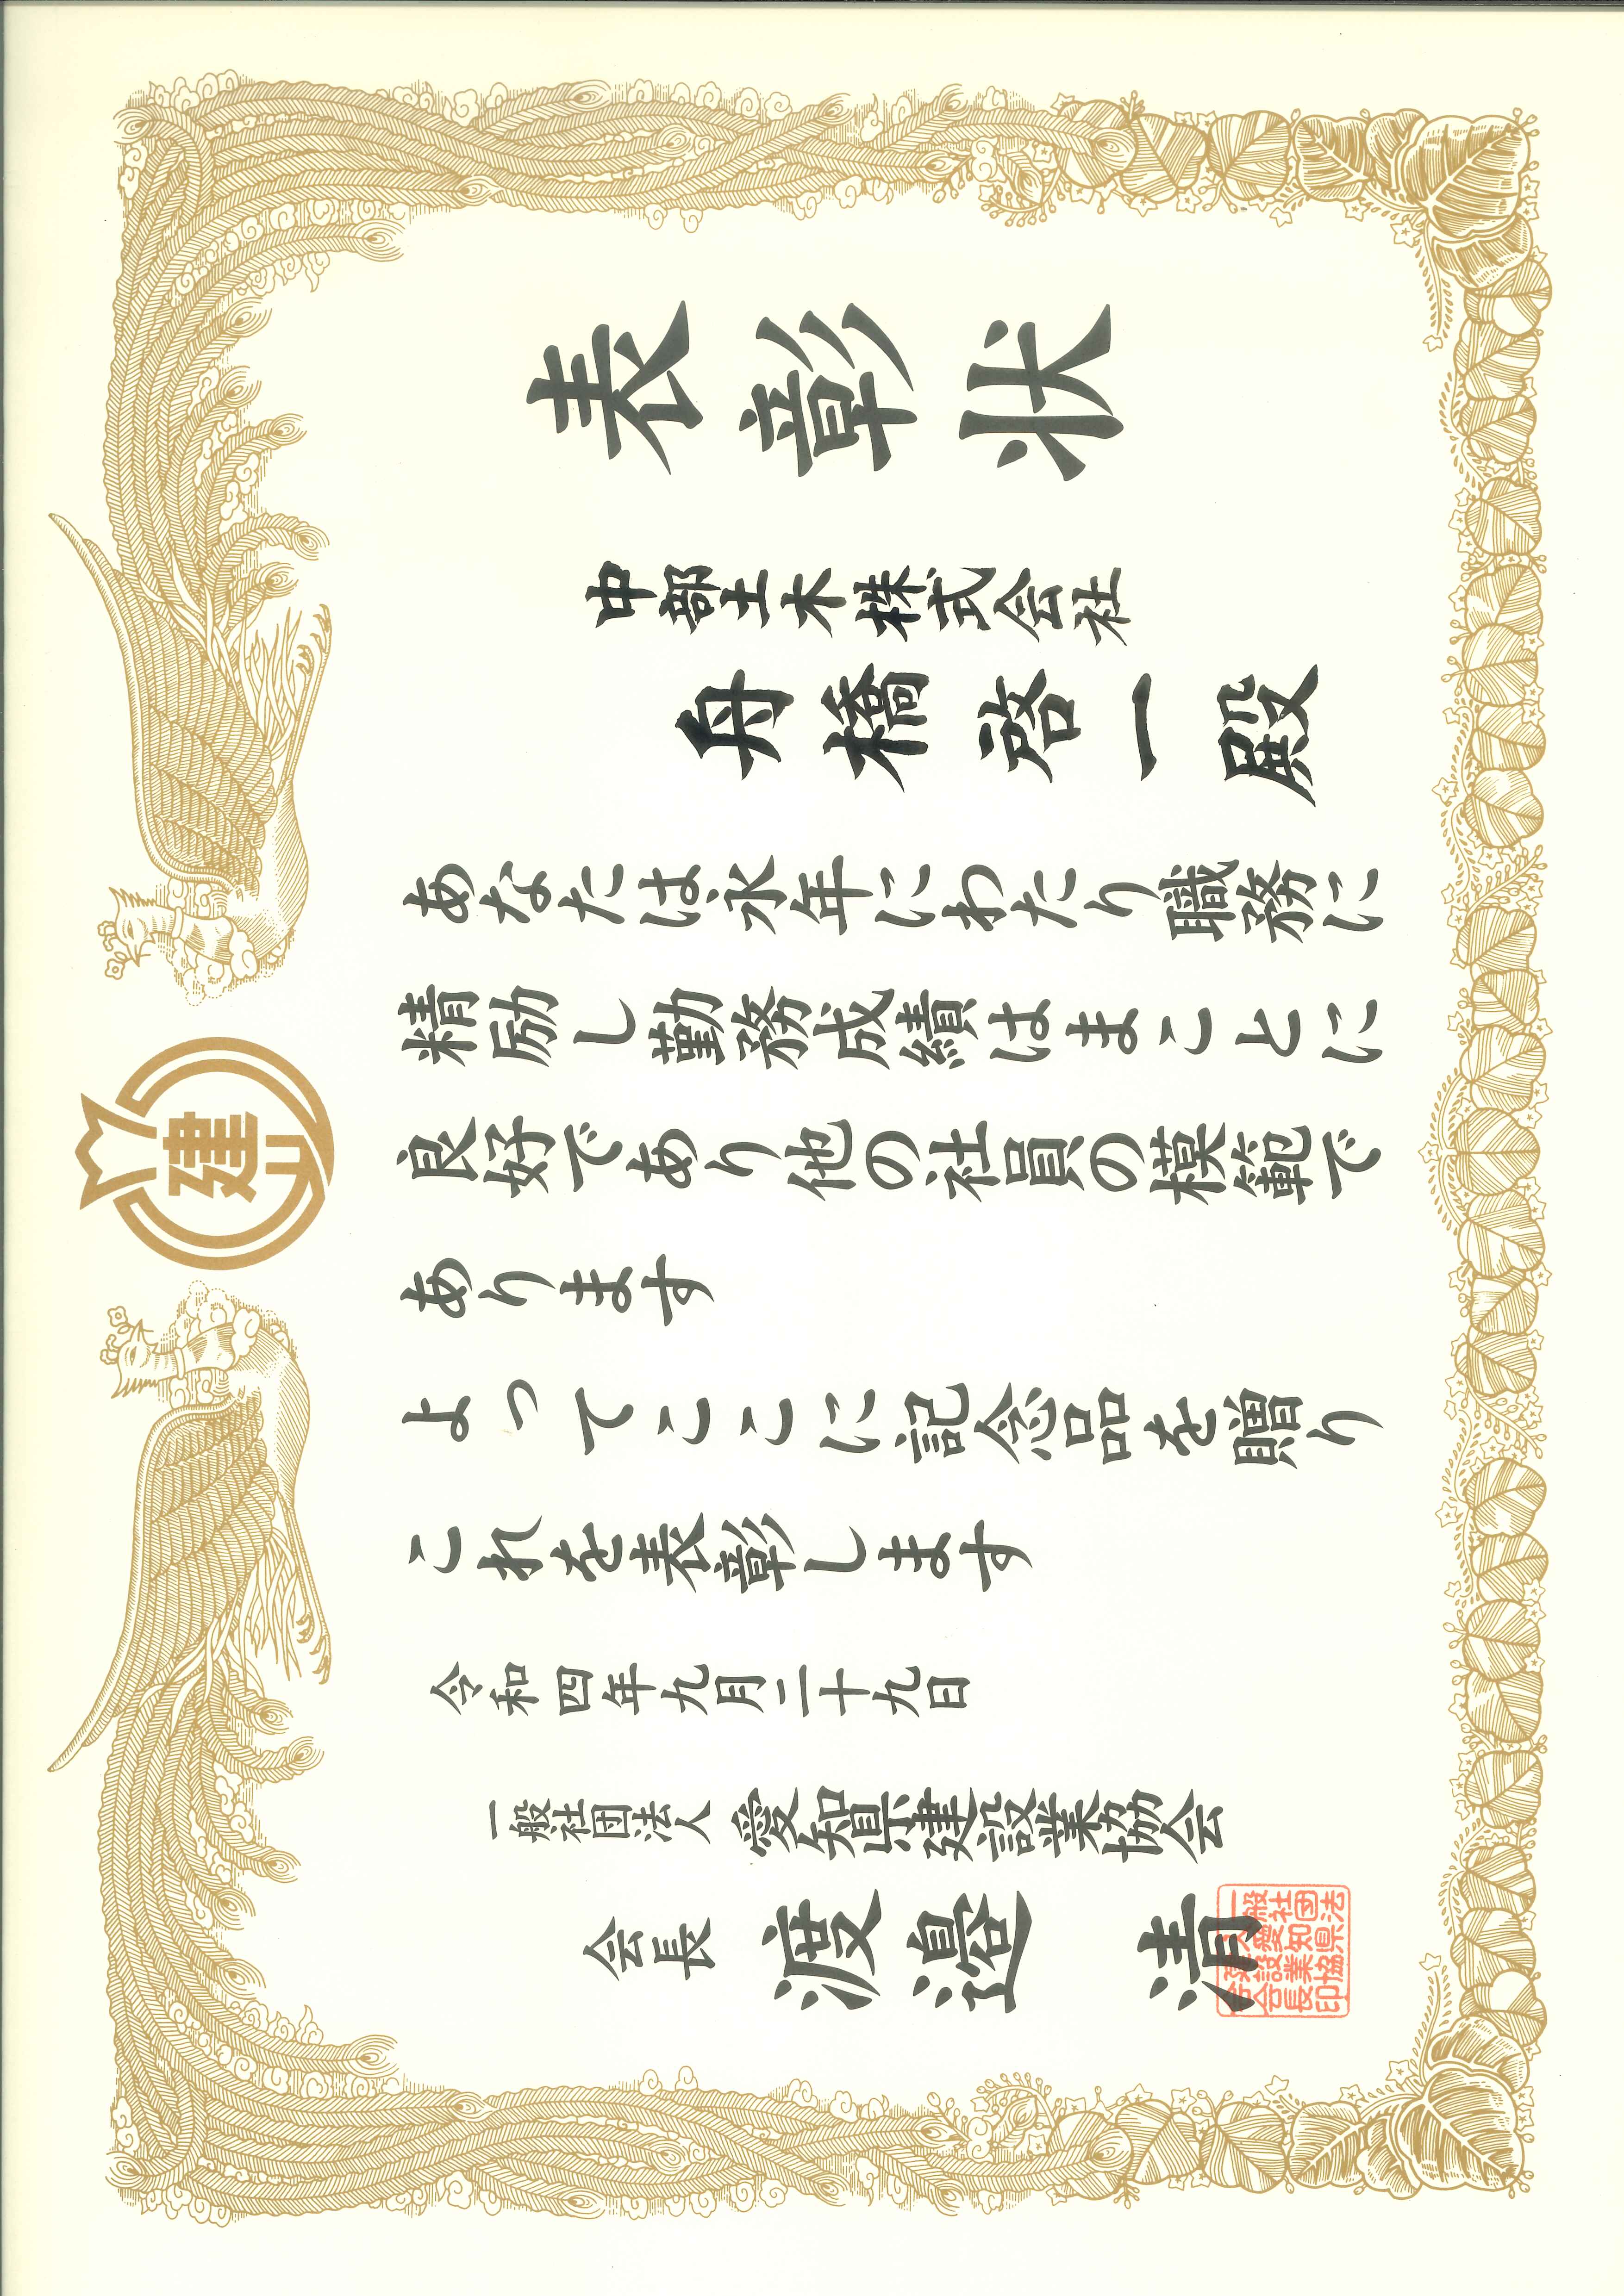 建
表彰状
中部土木株式会社
舟橋啓一殿
あなたは永年にわたり職務に
精励し勤務成績はまことに
良好であり他の社員の模範で
あります
よってここに記念品を贈り
これを表彰します
令和四年九月二十九日
一般社団法人 愛知県建設業協会
会長 渡邉 清